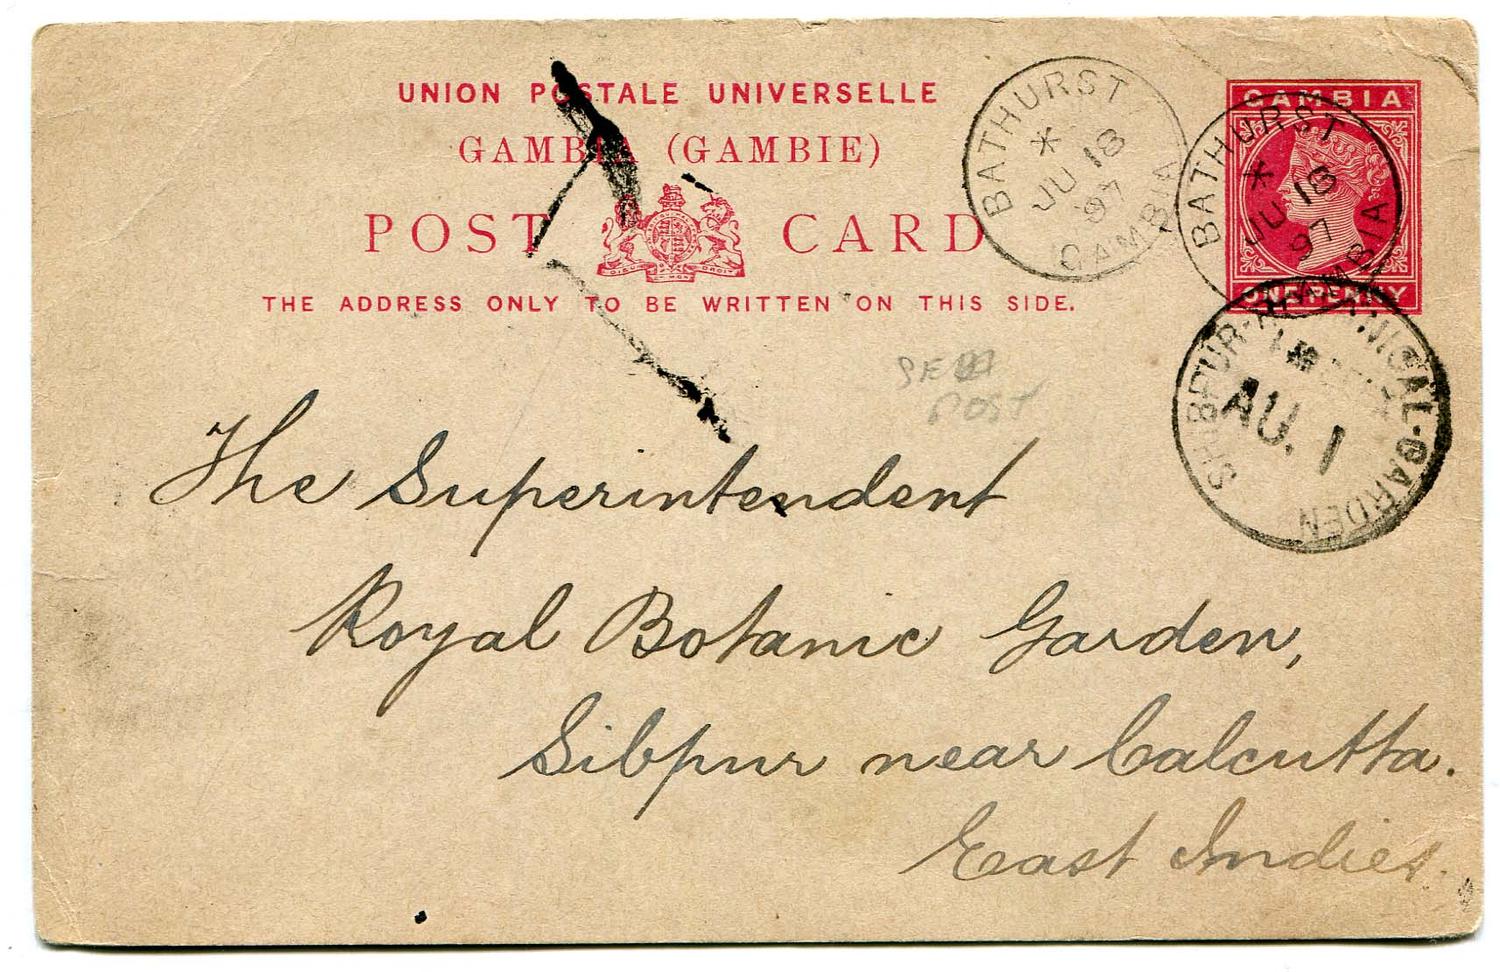 UNION POSTALE UNIVERSELLE
GAMBIA (GAMBIE)
POST CARD
THE ADDRESS ONLY TO BE WRITTEN ON THIS SIDE.
BATHURST
*
JU 18
97
GAMBIA
GAMBIA
ONE PENNY
BATHURST
*
JU 18
97
GAMBIA
AU. 1
GARDEN
POST
The Superintendent
Royal Botanic Garden,
Sibpur near Calcutta.
East Indies.